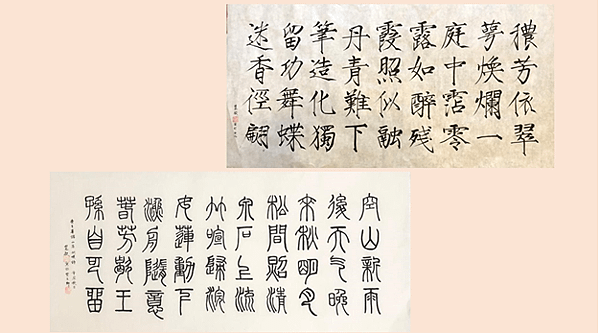 穠芳依翠
萼煥爛一
庭中霑零
露如醉残
霞照似融
丹青難下
筆造化獨
留功舞蝶
迷香徑翩
空山新雨
後天气晚
來秋明月
松間照清
泉石上流
竹喧歸浣
女蓮動下
漁舟隨意
春芳歇王
孫自可留